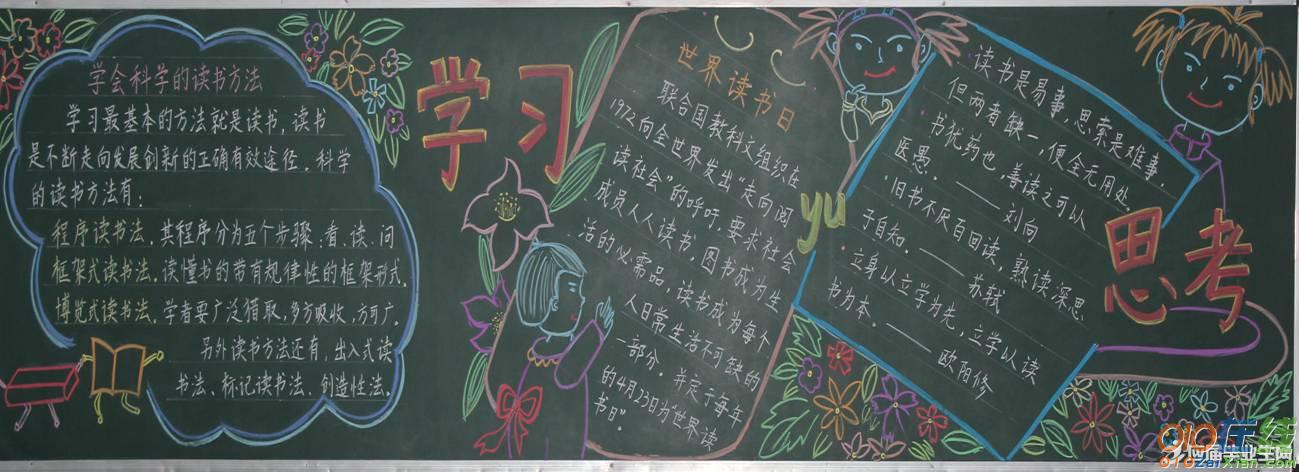 学会科学的读书方法
学习最基本的方法就是读书，读书
是不断走向发展创新的正确有效途径。科学
的读书方法有：
程序读书法。其程序分为五个步骤：看、读、问
框架式读书法。读懂书的带有规律性的框架形式。
博览式读书法。学者要广泛猎取，多方吸收，方可广。
另外读书方法还有，出入式读
书法、标记读书法、创造性法。
学习
yu
思考
世界读书日
联合国教科文组织在
1972向全世界发出“走向阅
读社会”的呼吁，要求社会
成员人人读书，图书成为生
活的必需品，读书成为每个
人日常生活不可缺的
一部分。并定于每年
的4月23日为“世界读
书日”。
读书是易事，思索是难事，
但两者缺一，便全无用处。
书犹药也，善读之可以
医愚。——刘向
旧书不厌百回读，熟读深思
子自知。——苏轼
立身以立学为先，立学以读
书为本。——欧阳修
应届毕业生网